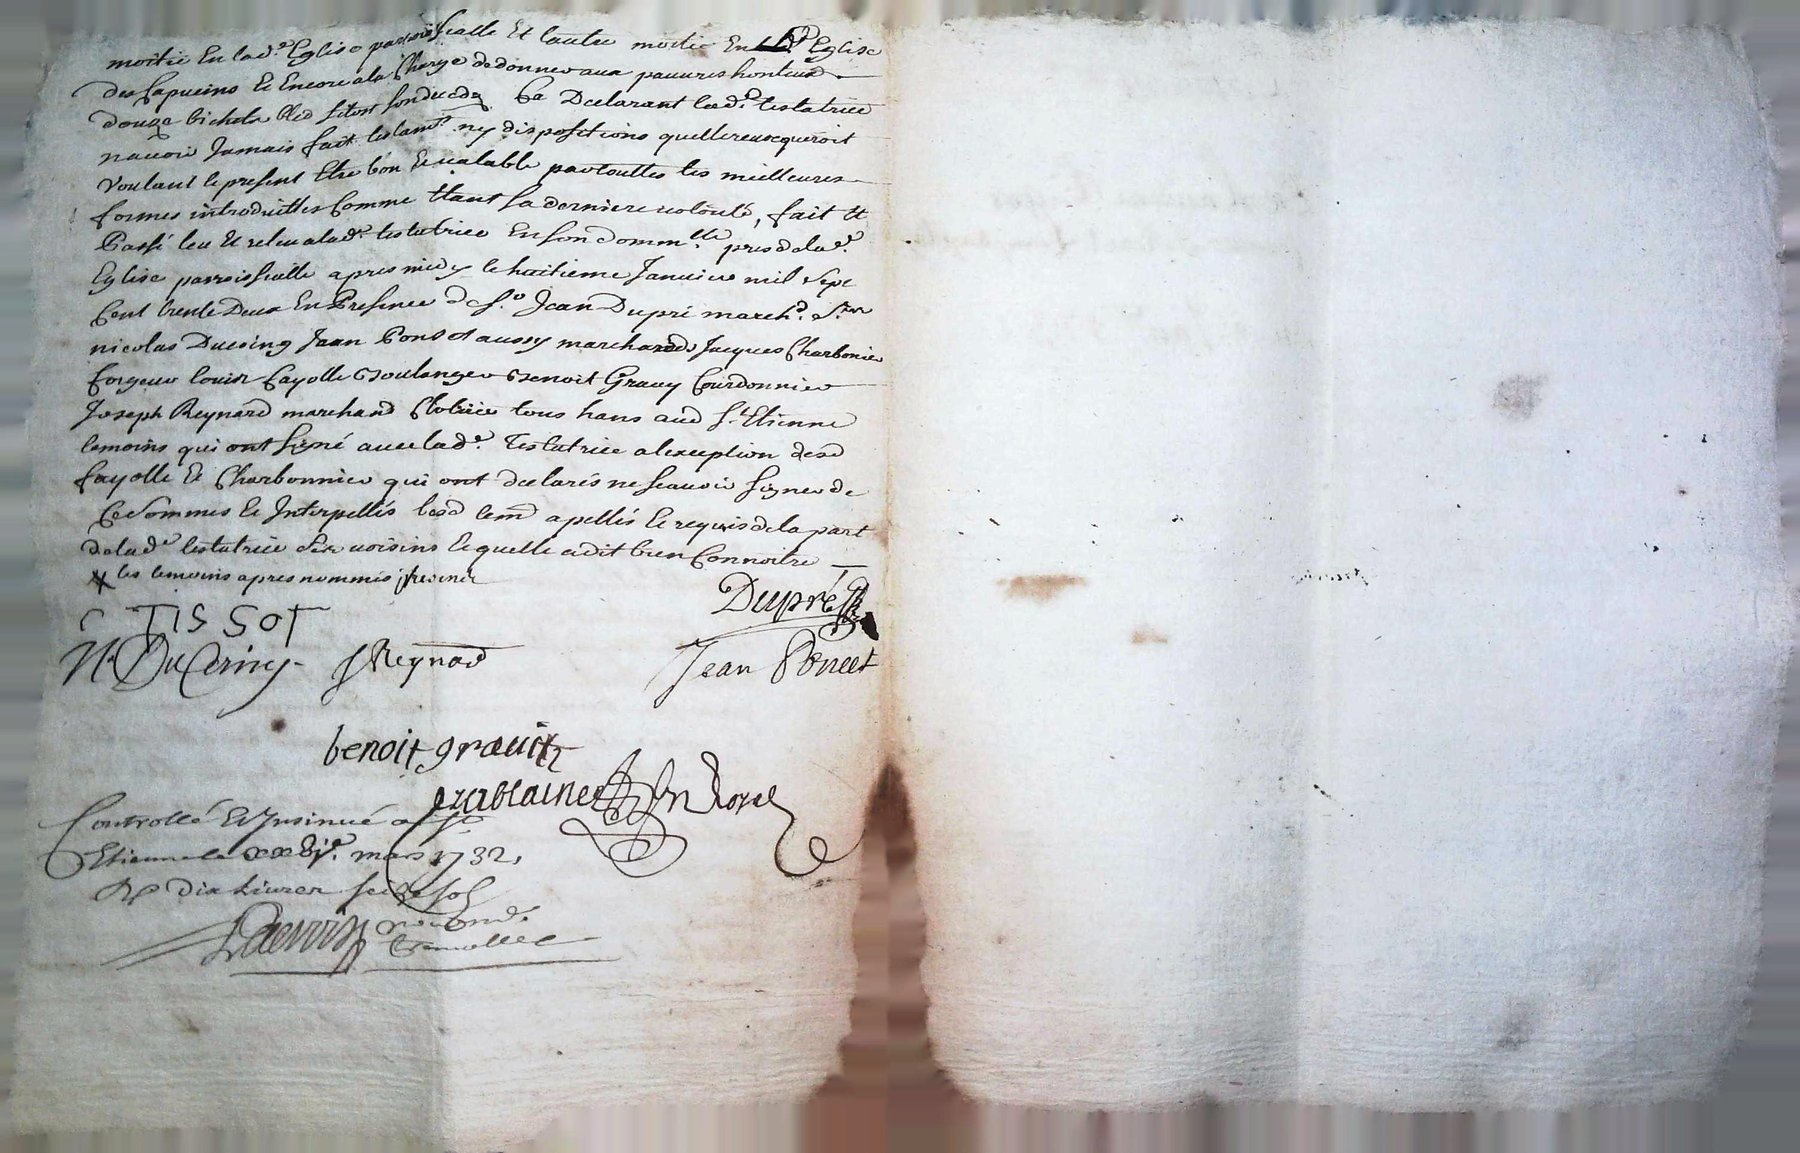 moitié En lad.e Eglise parroissialle Et lautre moitié En lad.e Eglise
des Capucins Et Encore ala Charge de donner aux pauvres honteux
douze bichets bled sitost son deceds Ce Declarant lad.e testatrice
navoir Jamais fait testam.t ny dispositions quelle revocqueroit
voulant le present Etre bon Et valable par touttes les meilleures
formes introduittes Comme Etant sa derniere volonté, fait Et
Passé leu Et releu alad.e testatrice En son domm.lle pres de lad.e
Eglise parroissialle apres midy le huitieme Janvier mil Sept
Cent trente Deux En Presence de s.r Jean Dupré march.d s.r
nicolas Ducoing Jean Ponsot aussy marchands Jacques Charbonier
forgeur louis fayolle Boulanger Benoit Gravy Courdonnier
Joseph Reynard marchand tous hans aud S.t Etienne
temoins qui ont signé avec lad.e Testatrice alexception desd
fayolle Et Charbonnier qui ont declarés ne scavoir signer de
Ce Sommés Et Interpellés lesd tem apellés Et requis de la part
de lad.e testatrice Ses voisins lequelle a dit bien Connoitre
les temoins apres nommés
C TISSOT
Dupré
N. Du J Reynard Jean Poncet
benoit
Controllé Et Insinué a St
Etienne le mars 1732,
Rx dix Livres seize sols